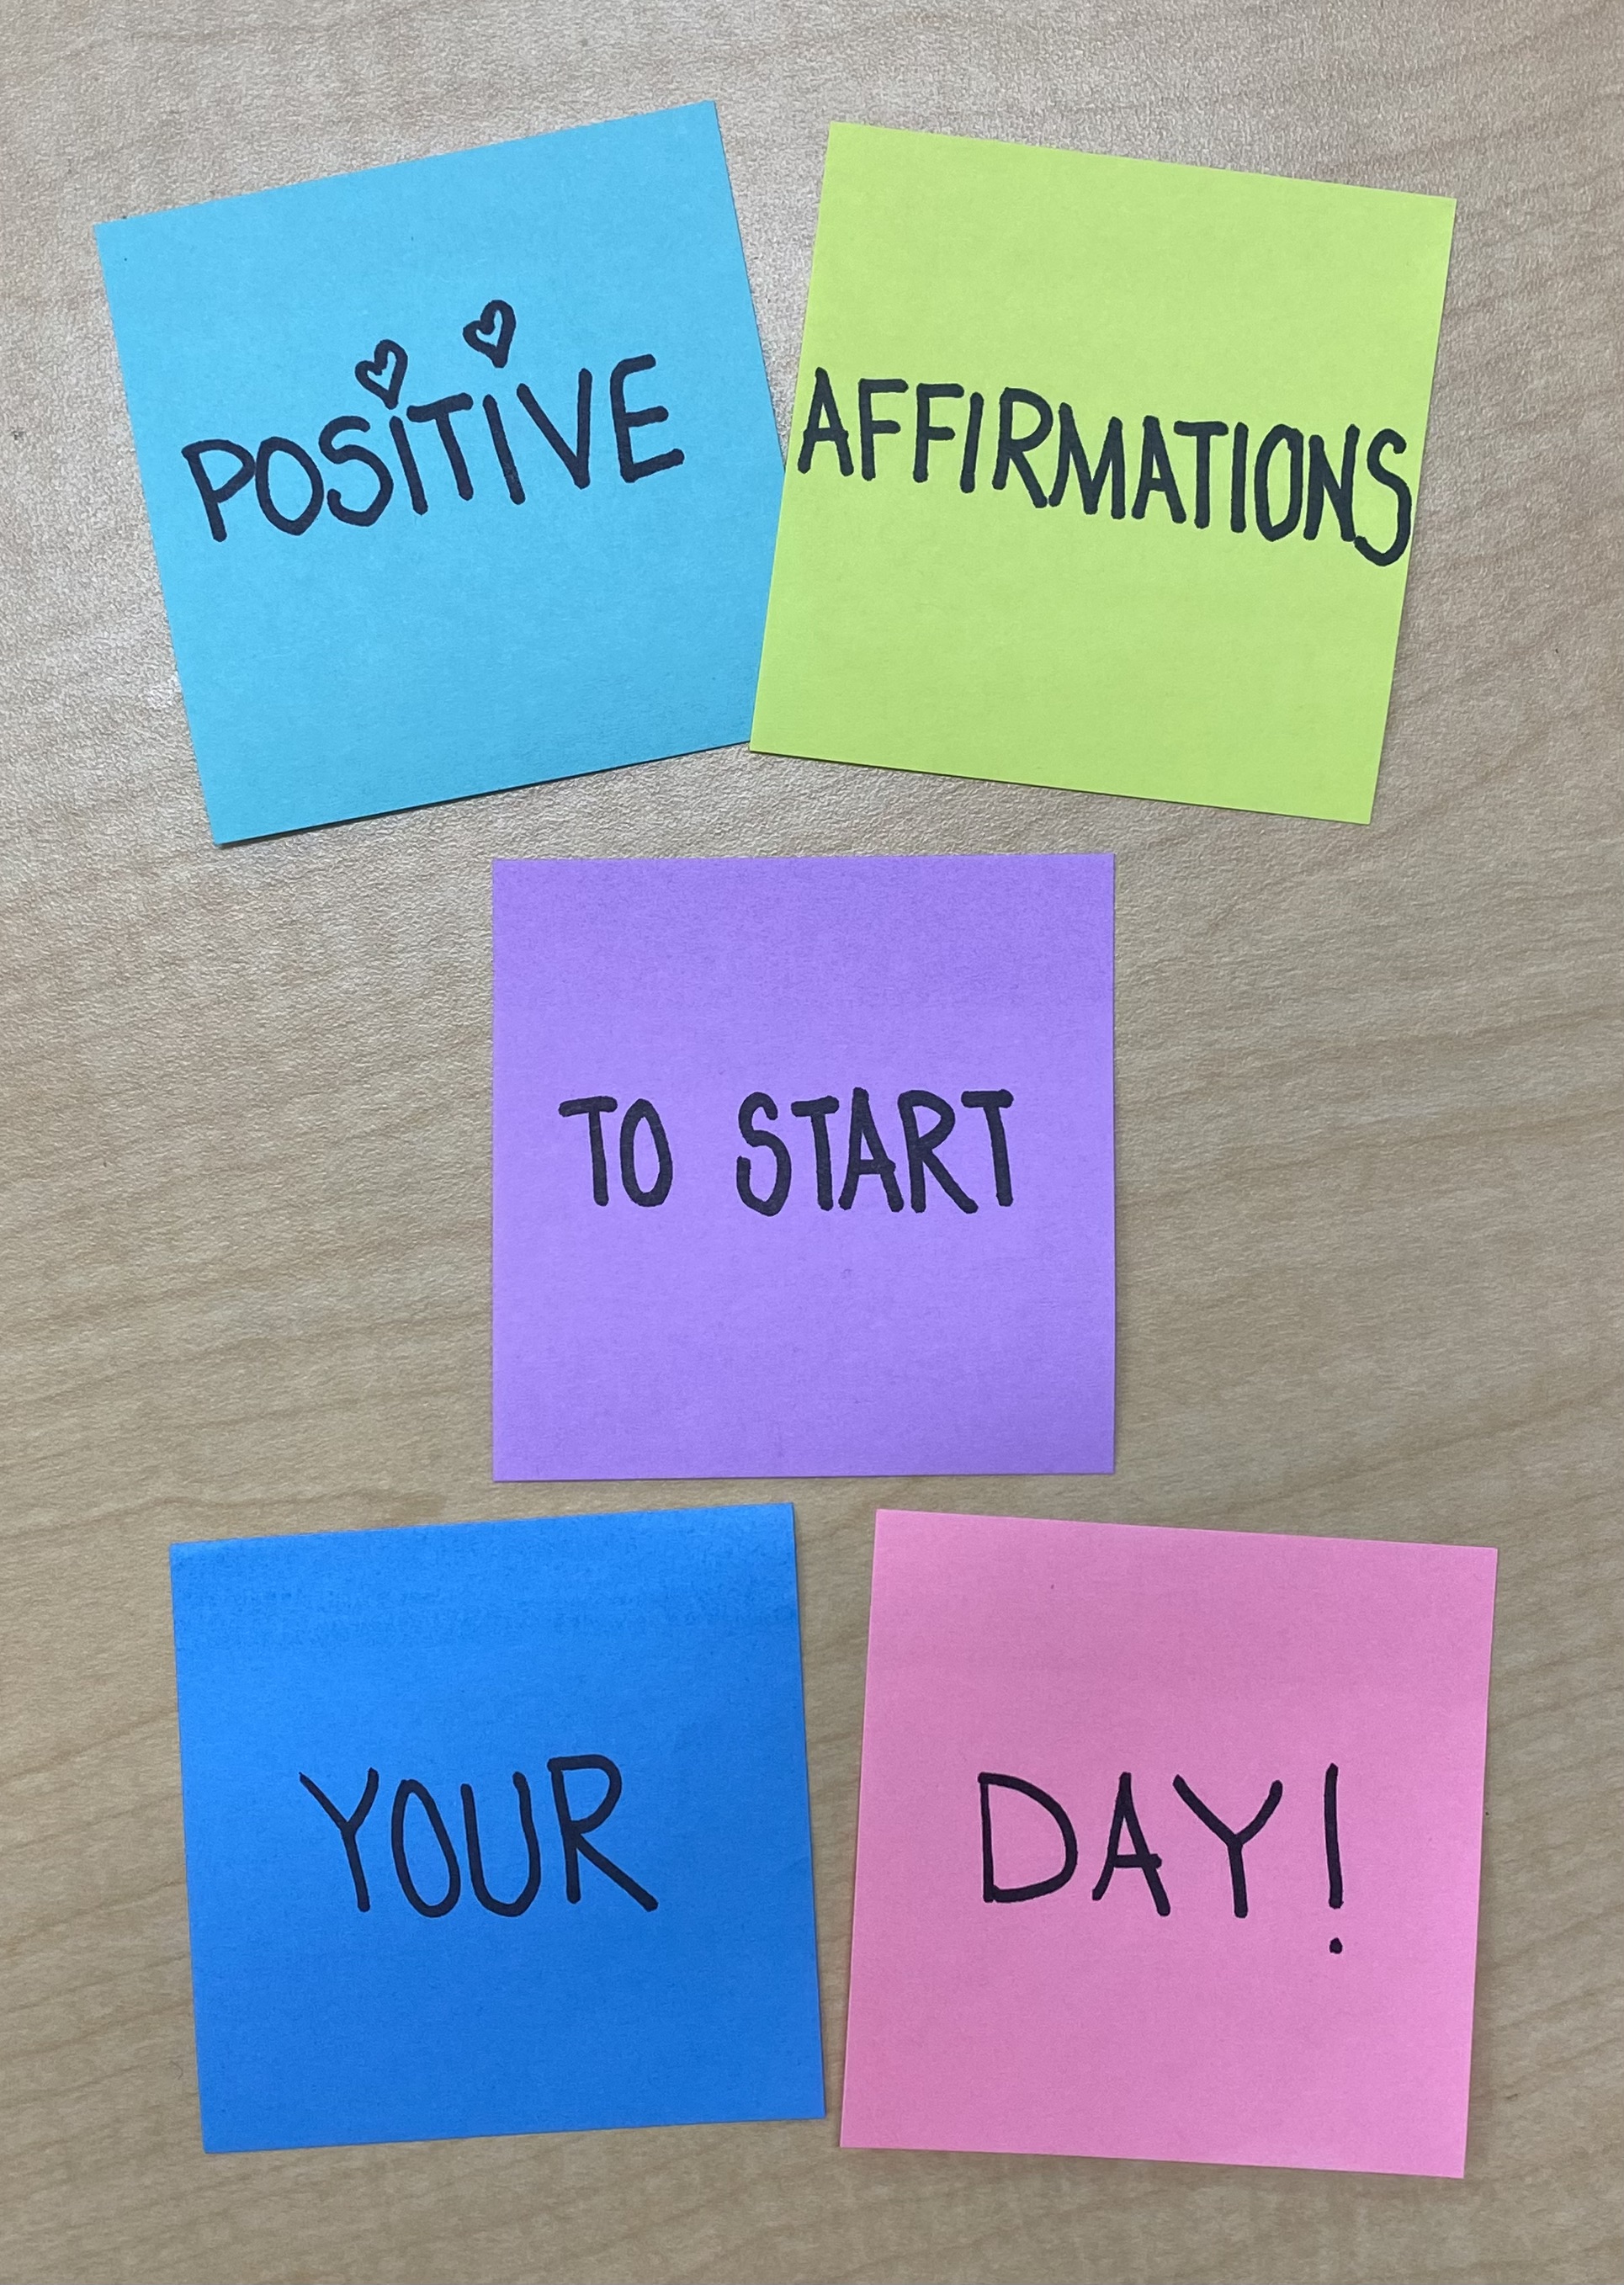 POSITIVE
AFFIRMATIONS
TO START
YOUR
DAY!